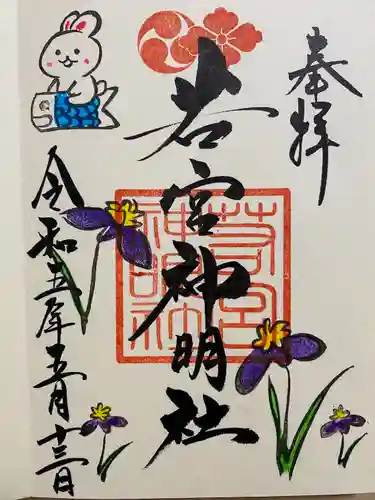 奉拝
若宮神明社
若宮神明社
令和五年五月十三日